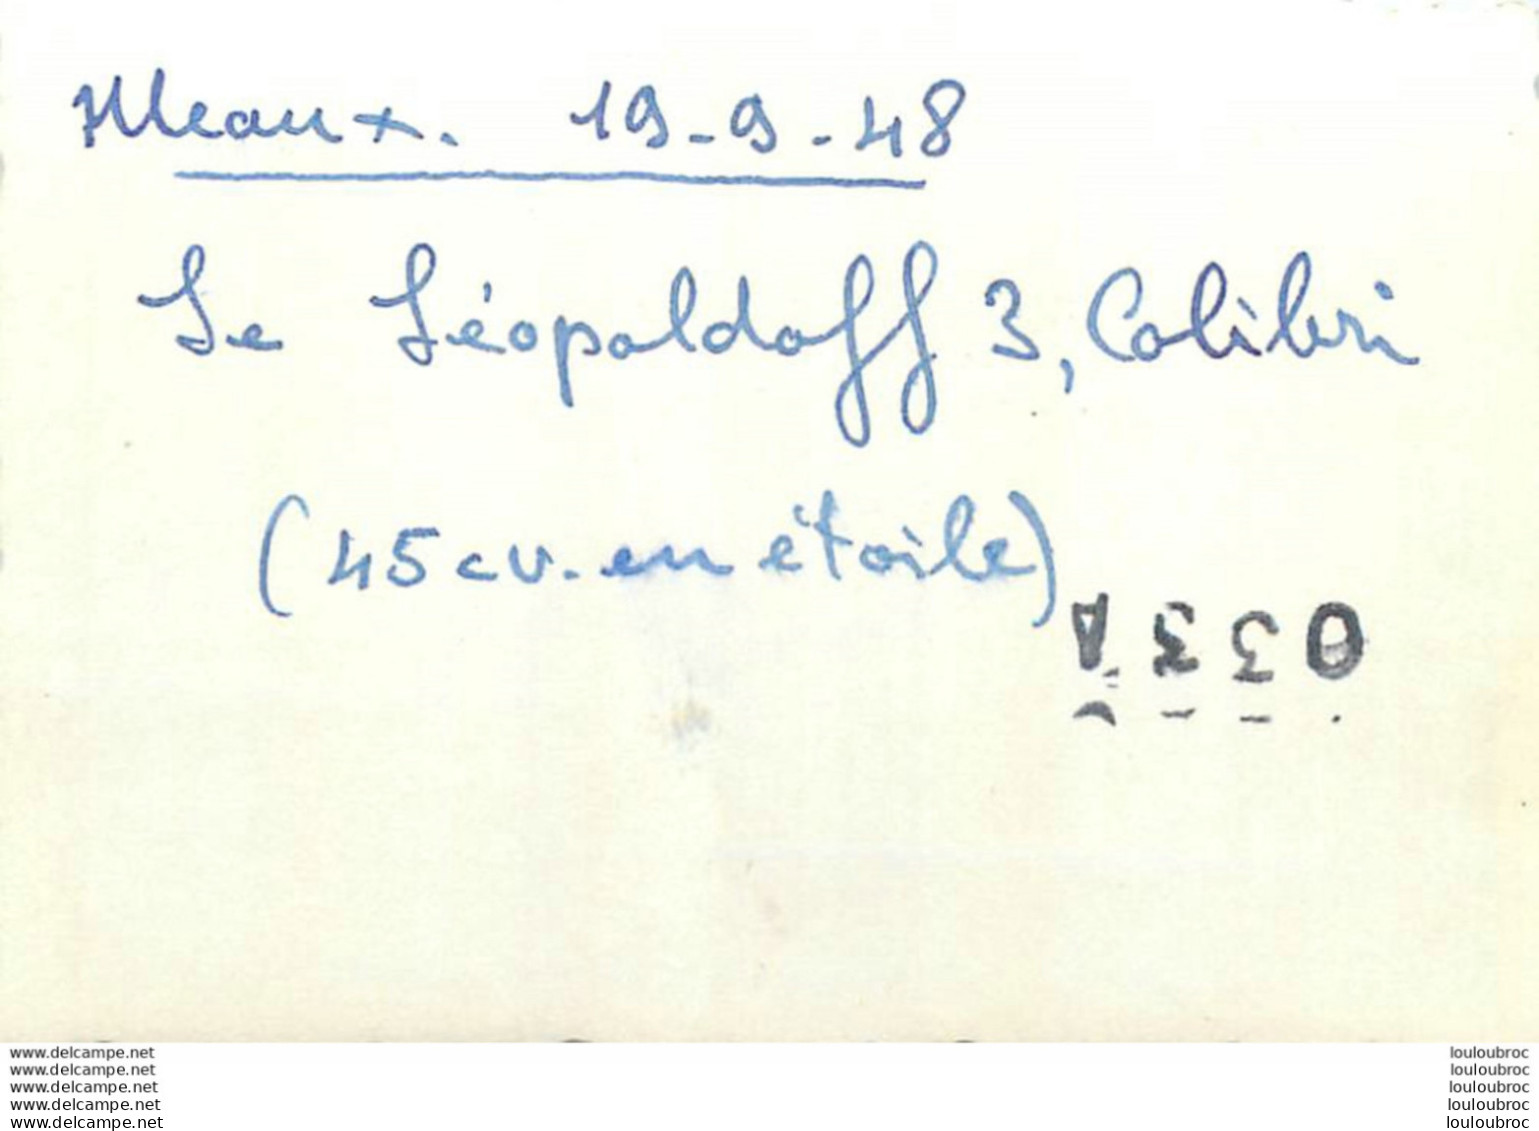 Meaux. 19-9-48
Le Léopoldoff 3, Colibri
(45 cv. en étoile)
www.delcampe.net
www.delcampe.net
www.delcampe.net
www.delcampe.net
www.delcampe.net
louloubroc
louloubroc
louloubroc
louloubroc
louloubroc